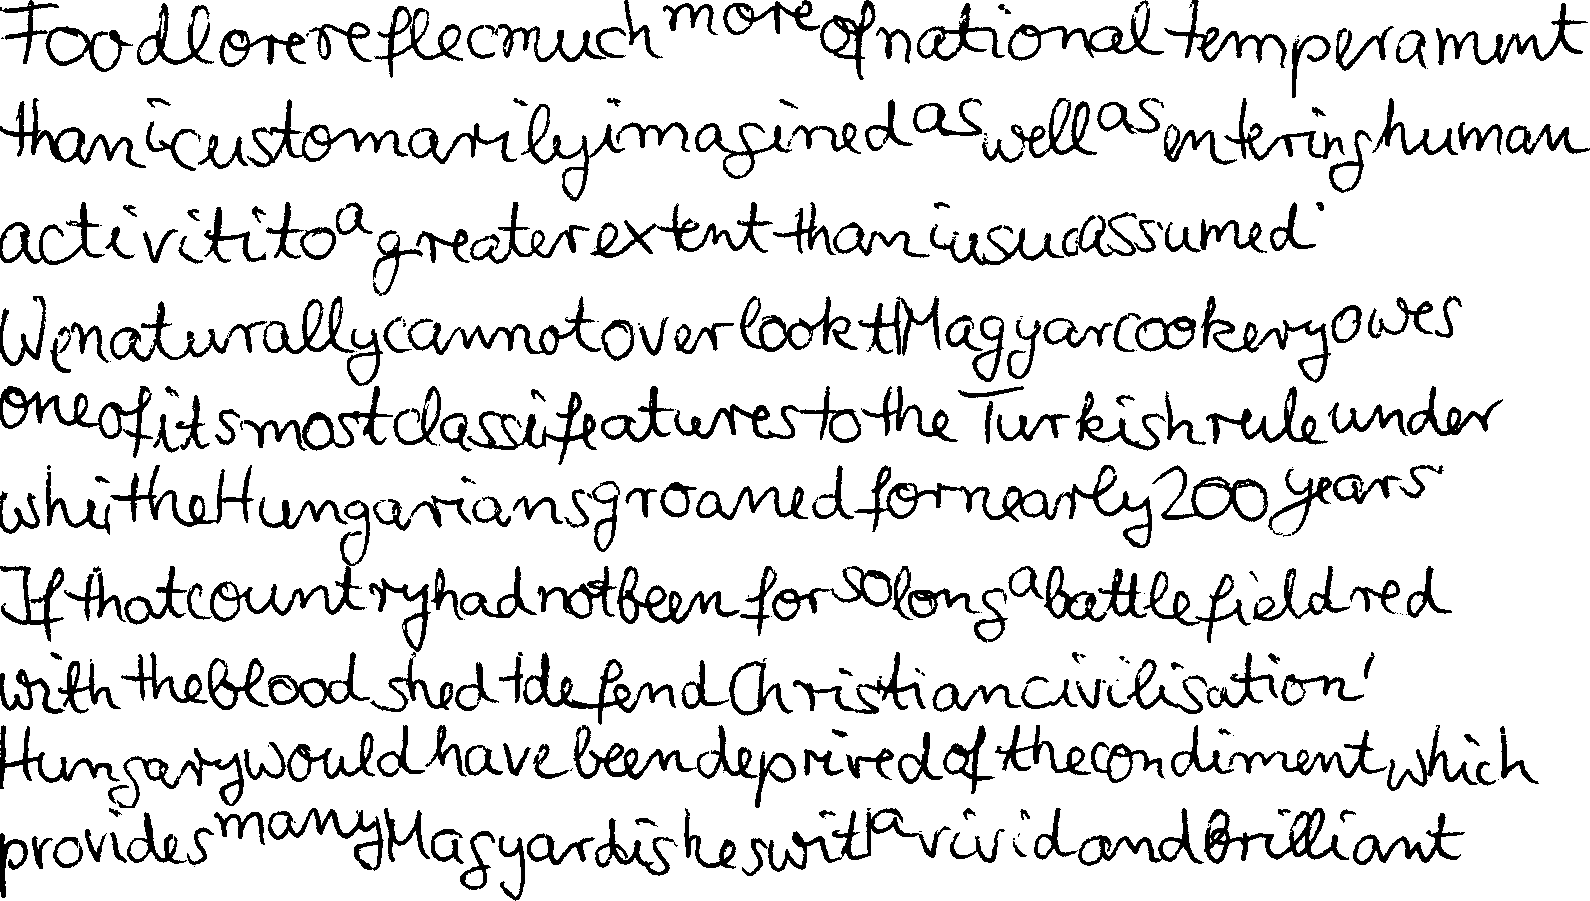 Food lore reflec much more of national temperament
than i customarily imagined as well as entering human
activiti to a greater extent than i usua assumed.
We naturally cannot overlook th Magyar cookery owes
one of its most classi features to the Turkish rule under
whi the Hungarians groaned for nearly 200 years.
If that country had not been for so long a battlefield red
with the blood shed t defend Christian civilisation,
Hungary would have been deprived of the condiment, which
provides many Magyar dishes wit a vivid and brilliant